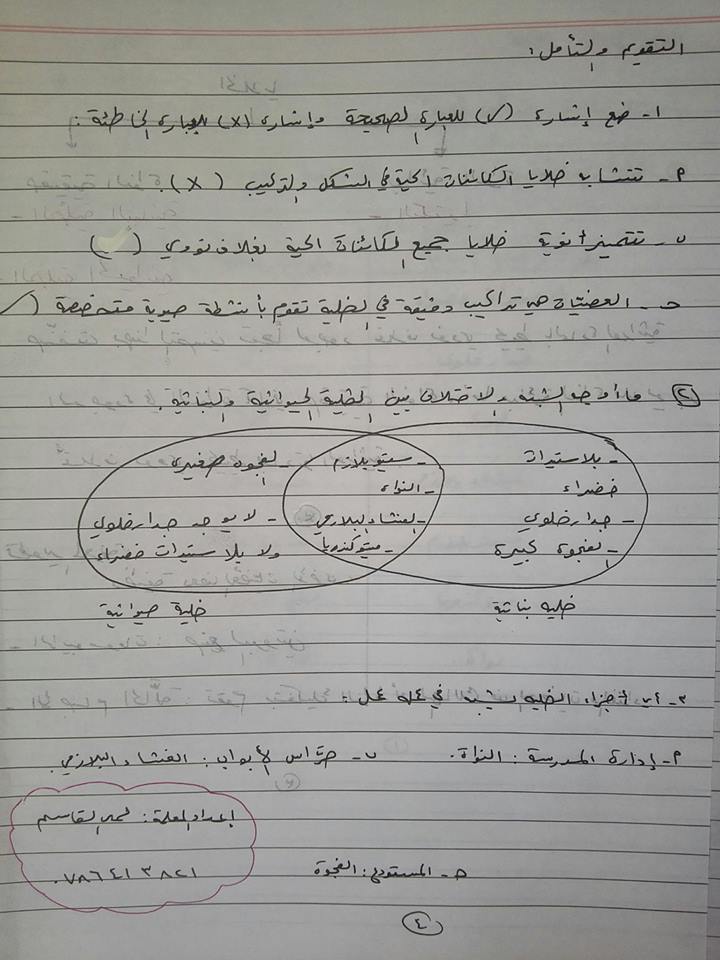 التقويم والتأمل:
١- ضع إشارة (✓) للعبارة الصحيحة وإشارة (X) للعبارة الخاطئة:
٢- تتشابه خلايا الكائنات الحية في الشكل والتركيب (X).
ب- تتميز أنوية خلايا جميع الكائنات الحية بغلاف نووي (✓)
ج- العضيّات هي تراكيب دقيقة في الخلية تقوم بأنشطة حيوية متخصصة (✓
٢ ما أوجه الشبه والاختلاف بين الخلية الحيوانية والنباتية.
- بلاستيدات - سيتوبلازم - لفجوه صغيرة
خضراء النواه
- جدار خلوي - الغشاء البلازمي - لا يوجد جدار خلوي
- لفجوة كبيرة - ميتوكندريا ولا بلاستيدات خضراء
خليه نباتية خلية حيوانية
٣- أي أجزاء الخليه يشبه في عمله عمل:
٢- إدارة المدرسة: النواة. ب- حرّاس الأبواب: الغشاء البلازمي
ج- المستودع: الفجوة
إعداد المعلمة: القاسم
٠٧٨٦٤١٣٨٢١
٤